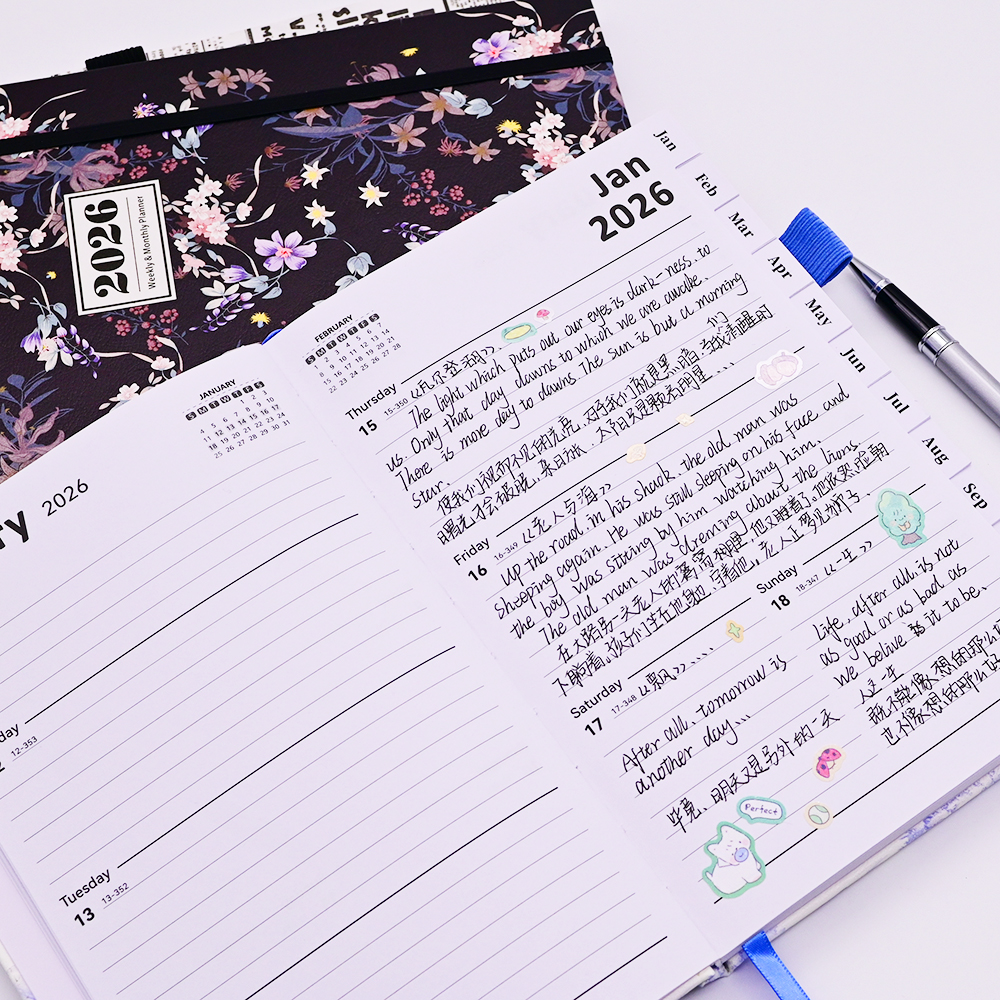 2026
Weekly & Monthly Planner
ry 2026
JANUARY
S M T W T F S
1 2 3
4 5 6 7 8 9 10
11 12 13 14 15 16 17
18 19 20 21 22 23 24
25 26 27 28 29 30 31
day
12-353
Tuesday
13 13-352
FEBRUARY
S M T W T F S
1 2 3 4 5 6 7
8 9 10 11 12 13 14
15 16 17 18 19 20 21
22 23 24 25 26 27 28
Jan
2026
Thursday
15 15-350 《瓦尔登湖》
The light which puts out our eyes is dark-ness to
us. Only that day dawns to which we are awake.
There is more day to dawn. The sun is but a morning
star.
使我们视而不见的光亮,对于我们就是黑暗.当我们清醒的
曙光才会破晓,来日方长,太阳只是颗启明星...
Friday
16 16-349 《老人与海》
Up the road in his shack, the old man was
sheeping again. He was still sleeping on his face and
the boy was sitting by him watching him.
The old man was dreming about the lions.
在大路另一头老人的窝棚里,他又睡着了.他依然脸朝
下躺着,孩子们坐在他身边,守着他,老人正梦见狮子.
Saturday
17 17-348 《飘》....
After all, tomorrow is
another day...
毕竟,明天又是另外的一天
Perfect
Sunday
18 18-347 《一生》
Life, after all, is not
as good or as bad as
we belive it to be.
人这一生
既不能像想的那么
也不像想的那么好
Jan
Feb
Mar
Apr
May
Jun
Jul
Aug
Sep